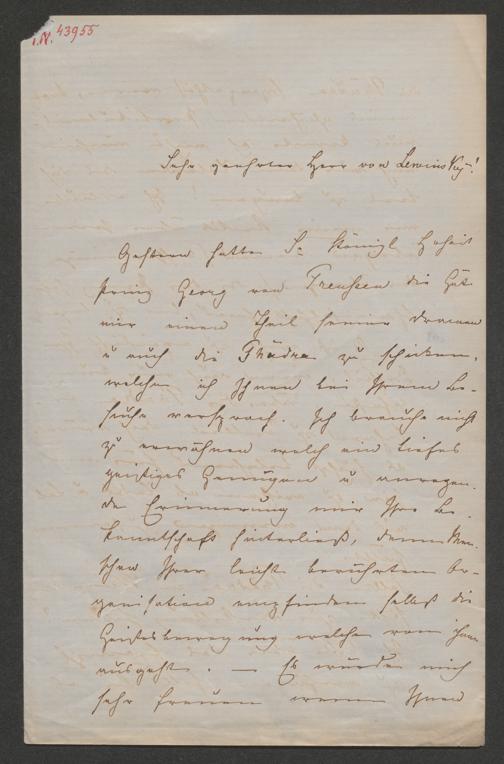 I.N. 43955
Sehr geehrter Herr von Lewinsky!
Gestern hatte Se Königl Hoheit
Prinz Georg von Preußen die Güte
mir einen Theil seiner Dramen
u auch die Phädra zu schicken,
welche ich Ihnen bei Ihrem Be-
suche versprach. Ich brauche nicht
zu erwähnen welch ein tiefes
geistiges Genügen u anregen-
de Erinnerung mir Ihre Be-
kanntschaft hinterließ, denn Men-
schen Ihrer leicht berührten Or-
ganisation empfinden selbst die
Geistesbewegung welche von ihnen
ausgeht. — Es würde mich
sehr freuen wenn Ihnen